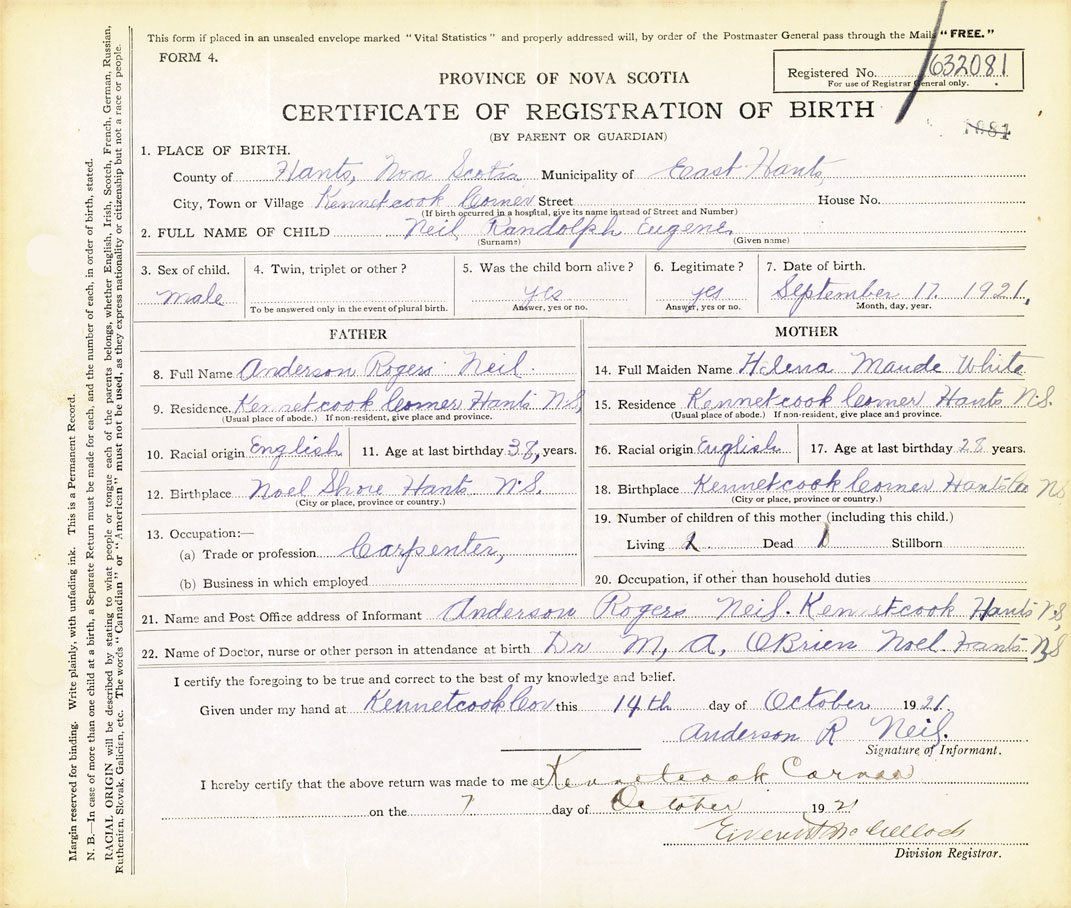 This form if placed in an unsealed envelope marked "Vital Statistics" and properly addressed will, by order of the Postmaster General pass through the Mails "FREE."
FORM 4.
Registered No. 632081
For use of Registrar General only.
PROVINCE OF NOVA SCOTIA
CERTIFICATE OF REGISTRATION OF BIRTH
(BY PARENT OR GUARDIAN)
1. PLACE OF BIRTH.
County of Hants, Nova Scotia Municipality of East Hants,
City, Town or Village Kennetcook Corner Street House No.
(If birth occurred in a hospital, give its name instead of Street and Number)
2. FULL NAME OF CHILD Neil Randolph Eugene,
(Surname) (Given name)
3. Sex of child. male
4. Twin, triplet or other?
To be answered only in the event of plural birth.
5. Was the child born alive? yes
Answer, yes or no.
6. Legitimate? yes
Answer, yes or no.
7. Date of birth. September 17. 1921,
Month, day, year.
FATHER
8. Full Name Anderson Rogers Neil.
9. Residence. Kennetcook Corner Hants NS,
(Usual place of abode.) If non-resident, give place and province.
10. Racial origin English 11. Age at last birthday 38, years.
12. Birthplace Noel Shore Hants N.S.
(City or place, province or country.)
13. Occupation:—
(a) Trade or profession Carpenter,
(b) Business in which employed
MOTHER
14. Full Maiden Name Helena Maude White
15. Residence Kennetcook Corner Hants N.S.
(Usual place of abode.) If non-resident, give place and province.
16. Racial origin English 17. Age at last birthday 28 years.
18. Birthplace Kennetcook Corner Hants Co NS
(City or place, province or country.)
19. Number of children of this mother (including this child.)
Living Dead 1 Stillborn
20. Occupation, if other than household duties
21. Name and Post Office address of Informant Anderson Rogers Neil. Kennetcook Hants N.S,
22. Name of Doctor, nurse or other person in attendance at birth Dr M, A, OBrien Noel Hants NS
I certify the foregoing to be true and correct to the best of my knowledge and belief.
Given under my hand at Kennetcook Cor this 14th day of October 1921.
Anderson R Neil.
Signature of Informant.
I hereby certify that the above return was made to me at Kennetcook Corner
on the 7 day of October 1921
Division Registrar.
Margin reserved for binding. Write plainly, with unfading ink. This is a Permanent Record.
N. B.—In case of more than one child at a birth, a Separate Return must be made for each, and the number of each, in order of birth, stated.
RACIAL ORIGIN will be described by stating to what people or tongue each of the parents belongs, whether English, Irish, Scotch, French, German, Russian,
Ruthenian, Slovak, Galician, etc. The words "Canadian" or "American" must not be used, as they express nationality or citizenship but not a race or people.